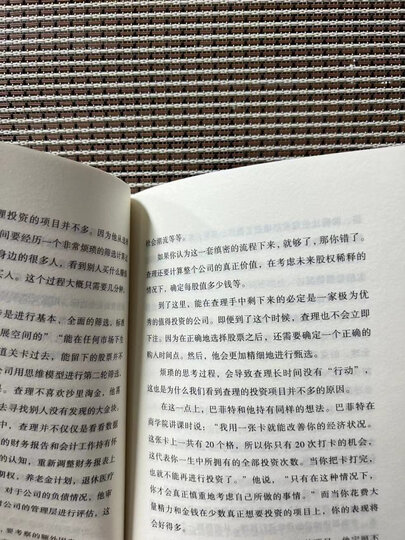 理投资的项目并不多。因为他从选
间要经历一个非常烦琐的筛选计
身边的很多人，看到别人买什么
买人。这个过程大概只需要几分钟。
步是进行基本、全面的筛选，标
展空间的”“能在任何市场下
道关卡过去，能留下的股票并不
司用思维模型进行第二轮筛选。
查理不喜欢沙里淘金，他
去寻找别人没有发现的大金块。
情况中，不仅仅是看看数据
财务报告和会计工作持有怀
认识，重新调整财务报表上
期权，养老金计划，退休医疗
对于公司的负债情况，他
司的管理层进行评估，这
要考察的额外因
社会潮流等等。
如果你认为这一套缜密的流程下来，就够了，那你错了。
查理还要计算整个公司的真正价值，在考虑未来股权稀释的
情况下，确定每股值多少钱等。
到了这里，能在查理手中剩下来的必定是一家极为优
秀的值得投资的公司。即便到了这个时候，查理也不会立即
下单。因为在正确地选择股票之后，还需要确定一个正确的
购入时间点。然后，他会更加精细地进行甄选。
烦琐的思考过程，会导致查理长时间没有“行动”，
这也是为什么我们看到查理的投资项目并不多的原因。
在这一点上，巴菲特和他持有同样的想法。巴菲特在
商学院讲课时说：“我用一张卡就能改善你的经济状况。
这张卡上一共有20个格，所以你只有20次打卡的机会，
这代表你一生中所拥有的全部投资次数。当你把卡打完，
也就不能再进行投资了。”他说，“只有在这种情况下，
你才会真正慎重地考虑自己所做的事情。”而当你花费大
量精力和金钱在少数真正想要投资的项目上，你的表现将
会好得多。